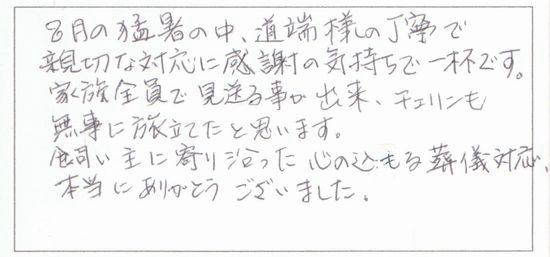 8月の猛暑の中、道端様の丁寧で
親切な対応に感謝の気持ちで一杯です。
家族全員で見送る事が出来、チェリンも
無事に旅立てたと思います。
飼い主に寄り沿った心の込もる葬儀対応、
本当にありがとうございました。